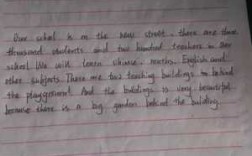 Our school is on the new street. there are three
thousand students and two hundred teachers in our
school. We will learn chinese, maths, English and
other subjects. There are two teaching buildings to behind
the playground. And the buildings is very beautiful.
because there is a big garden behind the building.